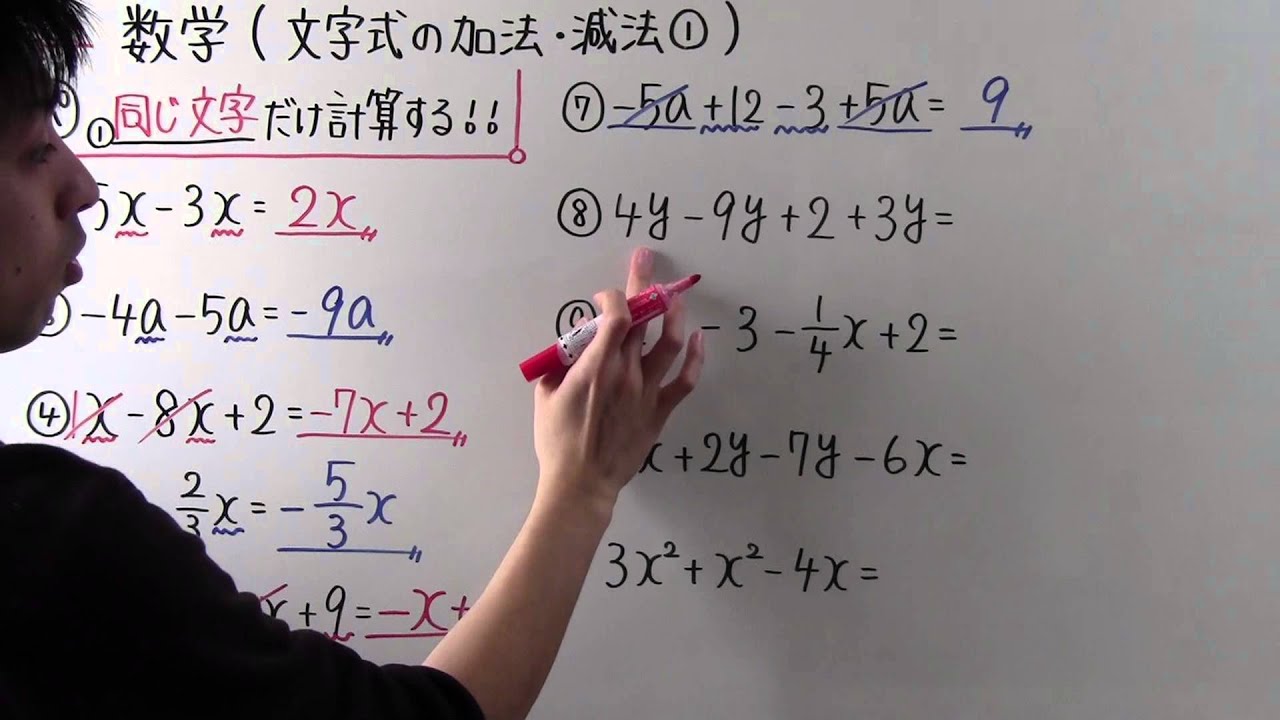 数学(文字式の加法・減法①)
①同じ文字だけ計算する!!
5x-3x=2x
-4a-5a=-9a
④1x-8x+2=-7x+2
2/3x=-5/3x
x+9=-x+
⑦-5a+12-3+5a=9
⑧4y-9y+2+3y=
-3-1/4x+2=
x+2y-7y-6x=
3x²+x²-4x=